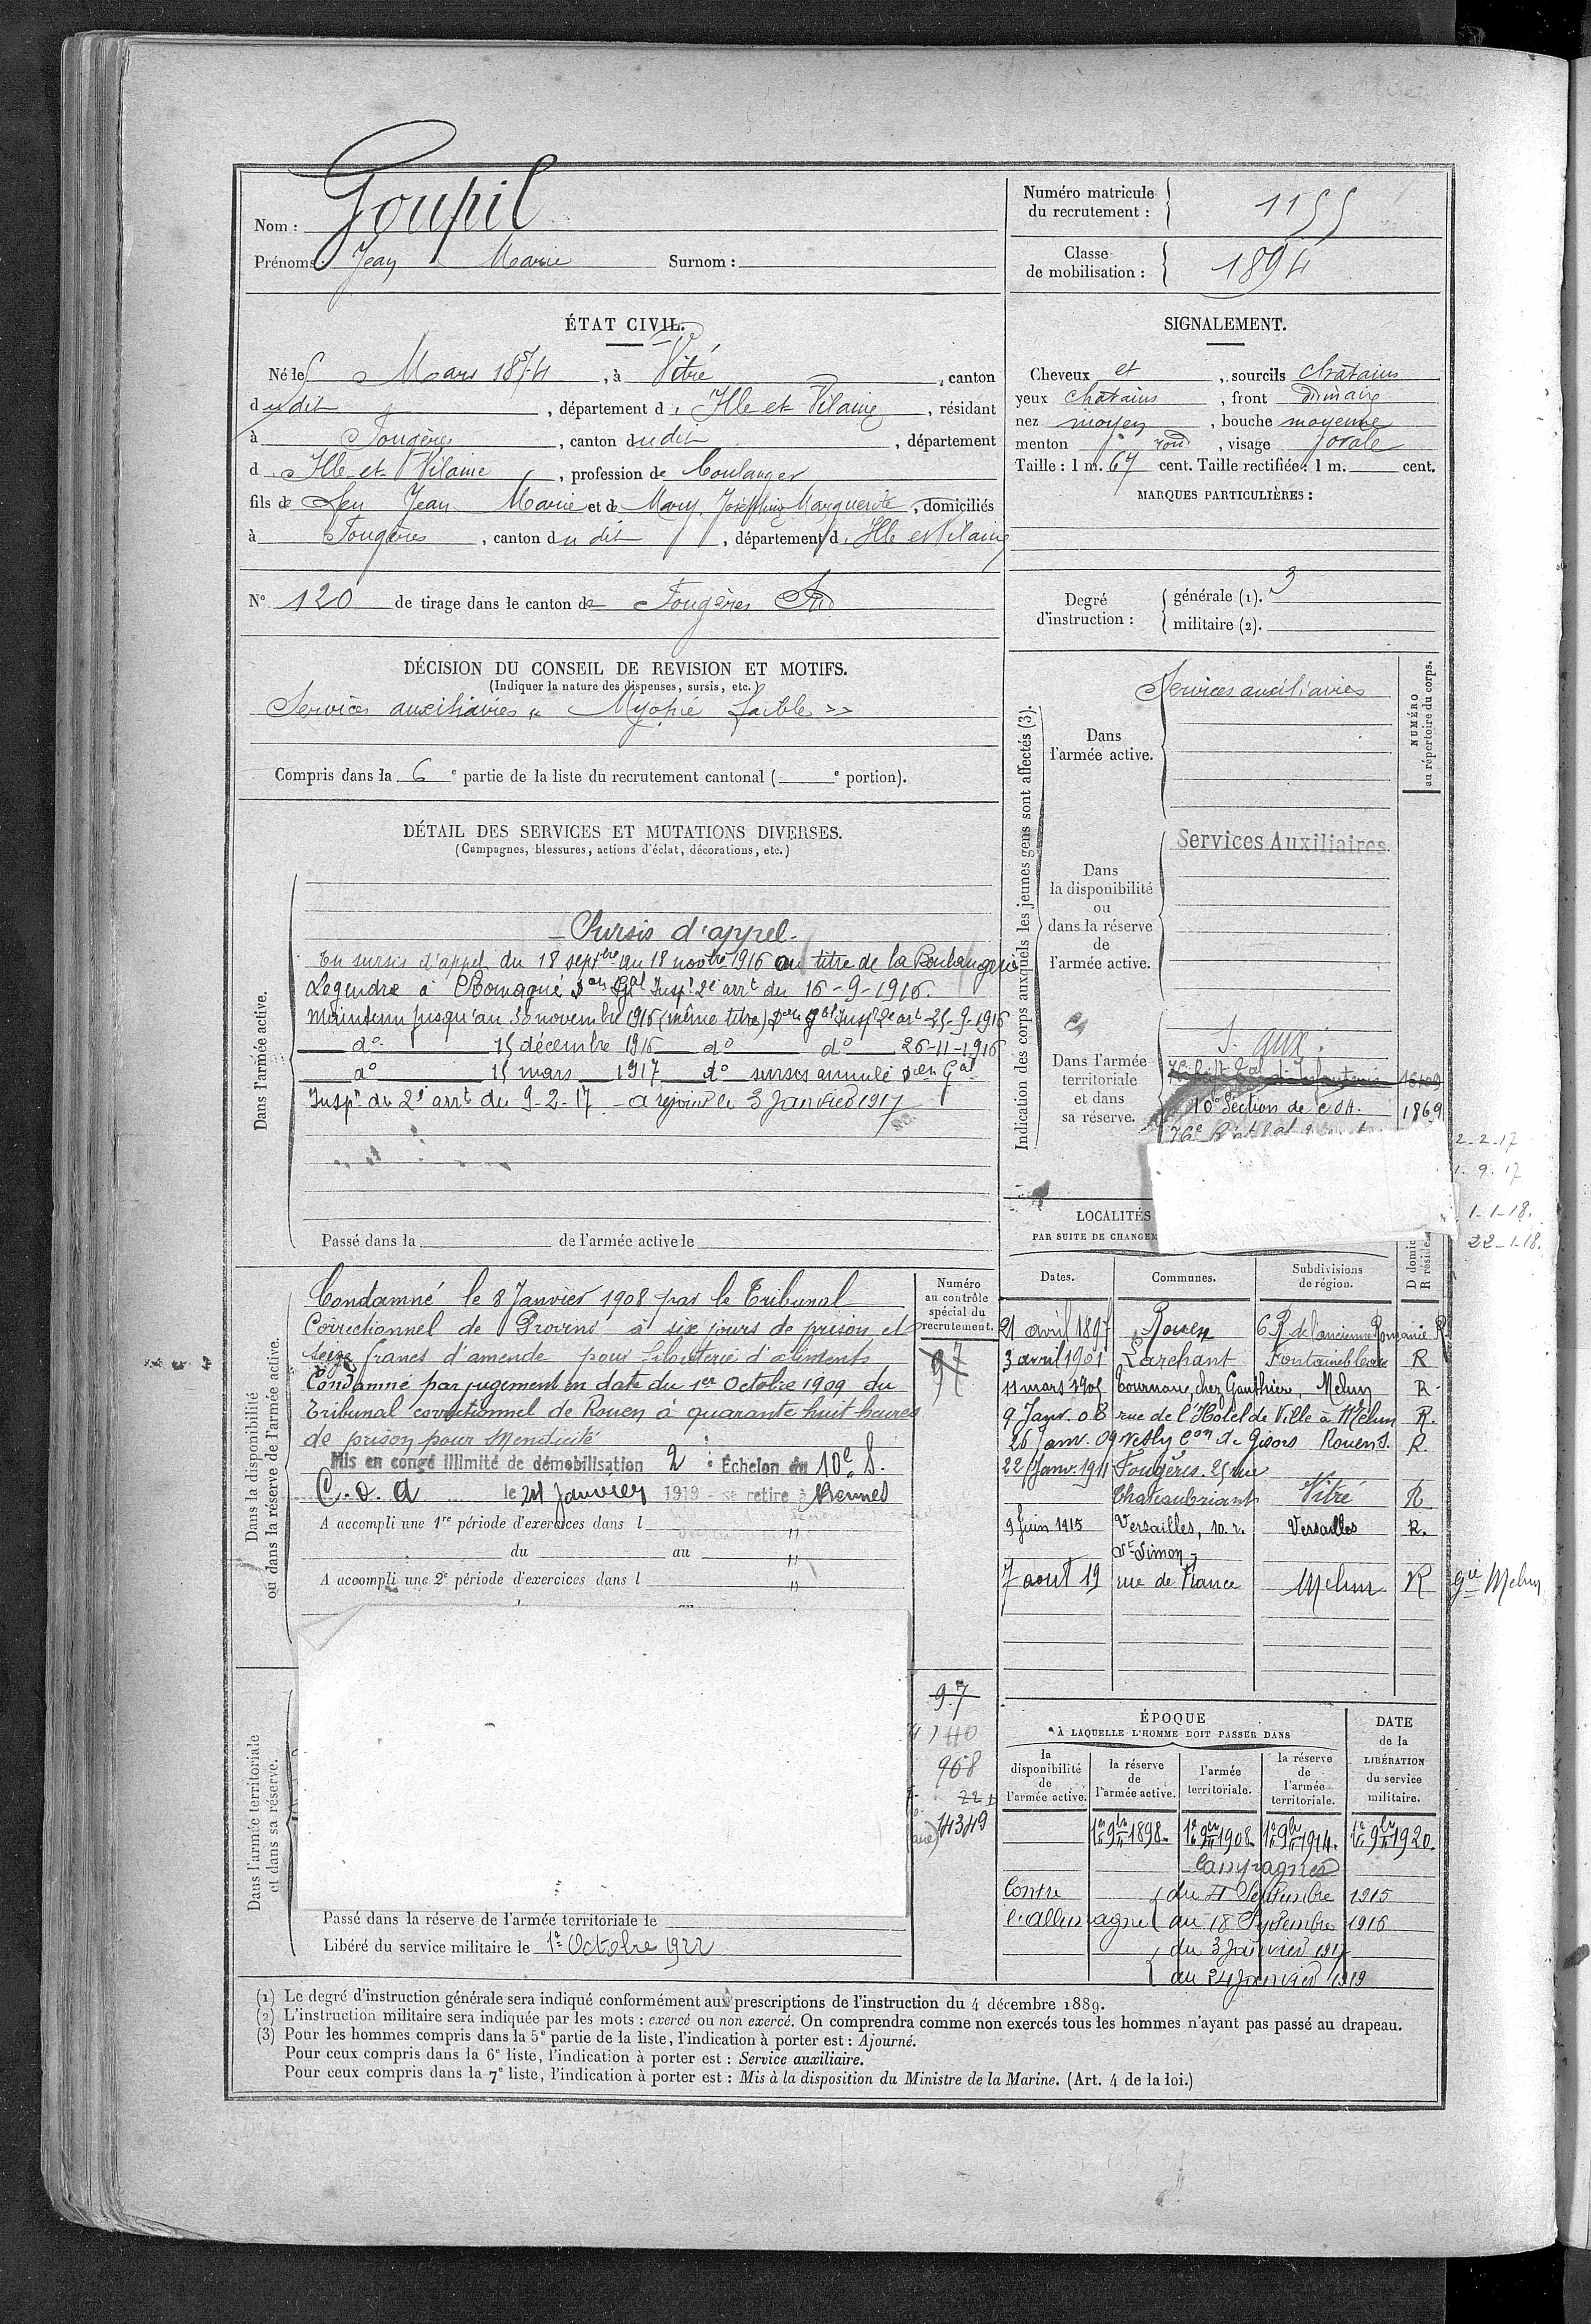 Nom : Goupil
Prénoms : Jean Marie Surnom :
Numéro matricule du recrutement : 1155
Classe de mobilisation : 1894
ÉTAT CIVIL.
Né le 5 Mars 1874, à Vitré, canton
dudit, département d'Ille et Vilaine, résidant
à Fougères, canton dudit, département
d'Ille et Vilaine, profession de boulanger
fils de feu Jean Marie et de Mary, Joséphine Marguerite, domiciliés
à Fougères, canton dudit, département d'Ille et Vilaine
N° 120 de tirage dans le canton de Fougères Sud
SIGNALEMENT.
Cheveux et, sourcils chatains
yeux chatains, front ordinaire
nez moyen, bouche moyenne
menton rond, visage ovale
Taille : 1 m. 67 cent. Taille rectifiée : 1 m. cent.
MARQUES PARTICULIÈRES :
Degré d'instruction : générale (1). 3
militaire (2).
DÉCISION DU CONSEIL DE REVISION ET MOTIFS.
(Indiquer la nature des dispenses, sursis, etc.)
Services auxiliaires « Myopie faible »
Compris dans la 6e partie de la liste du recrutement cantonal ( e portion).
DÉTAIL DES SERVICES ET MUTATIONS DIVERSES.
(Campagnes, blessures, actions d'éclat, décorations, etc.)
Dans l'armée active.
Sursis d'appel.
En sursis d'appel du 18 septbre au 18 novbre 1916 au titre de la Boulangerie
Legendre à Romagné Don Gal Inspr 2e arrt du 16-9-1916.
Maintenu jusqu'au 30 novembre 1916 (même titre) Don Gal Insp 2e art 25-9-1916
do 15 décembre 1916 do do 26-11-1916
do 15 mars 1917 do sursis annulé Don Gal
Inspr du 2e arrt du 9-2-17 a rejoint le 3 Janvier 1917
Passé dans la de l'armée active le
Indication des corps auxquels les jeunes gens sont affectés (3).
NUMÉRO au répertoire du corps.
Dans l'armée active.
Services auxiliaires
Dans la disponibilité ou dans la réserve de l'armée active.
Services Auxiliaires.
Dans l'armée territoriale et dans sa réserve.
S. aux.
10e Section de C.O.A. 1869
2-2-17
1.9.17
1-1-18.
22-1-18.
LOCALITÉS
PAR SUITE DE CHANGEM
Dates. Communes. Subdivisions de région. D domic R réside
21 avril 1897 Rouen R
3 avril 1901 Larchant Fontainebleau R
11 mars 1905 tournane, chez Gauthier, Melun R
9 Janv. 08 rue de l'Hotel de Ville à Melun R.
26 Janv. 09 Vesly Con de Gisors Rouen S. R.
22 Janv. 1911 Fougères. 25 rue
Chateaubriant Vitré R
9 Juin 1915 Versailles, 10. r. Versailles R.
St Simon
7 aout 19 rue de France Melun R gie Melun
Dans la disponibilité ou dans la réserve de l'armée active.
Numéro au contrôle spécial du recrutement.
97
Condamné le 8 Janvier 1908 par le Tribunal
Correctionnel de Provins à six jours de prison et
seize francs d'amende pour filouterie d'aliments
Condamné par jugement en date du 1er Octobre 1909 du
Tribunal correctionnel de Rouen à quarante huit heures
de prison pour mendicité
Mis en congé illimité de démobilisation 2 : Échelon du 10e S.
C.o.a le 24 Janvier 1919 - se retire à Rennes
A accompli une 1re période d'exercices dans l
du au
A accompli une 2e période d'exercices dans l
Dans l'armée territoriale et dans sa réserve.
97
968
14349
Passé dans la réserve de l'armée territoriale le
Libéré du service militaire le 1er Octobre 1922
ÉPOQUE
À LAQUELLE L'HOMME DOIT PASSER DANS
la disponibilité de l'armée active. la réserve de l'armée active. l'armée territoriale. la réserve de l'armée territoriale.
DATE de la LIBÉRATION du service militaire.
1er 9bre 1898. 1er 9bre 1908. 1er 9bre 1914. 1er 9bre 1920.
Campagnes
Contre du 4 Septembre 1915
l'allemagne au 18 Septembre 1916
du 3 Janvier 1917
au 24 Janvier 1919
(1) Le degré d'instruction générale sera indiqué conformément aux prescriptions de l'instruction du 4 décembre 1889.
(2) L'instruction militaire sera indiquée par les mots : exercé ou non exercé. On comprendra comme non exercés tous les hommes n'ayant pas passé au drapeau.
(3) Pour les hommes compris dans la 5e partie de la liste, l'indication à porter est : Ajourné.
Pour ceux compris dans la 6e liste, l'indication à porter est : Service auxiliaire.
Pour ceux compris dans la 7e liste, l'indication à porter est : Mis à la disposition du Ministre de la Marine. (Art. 4 de la loi.)